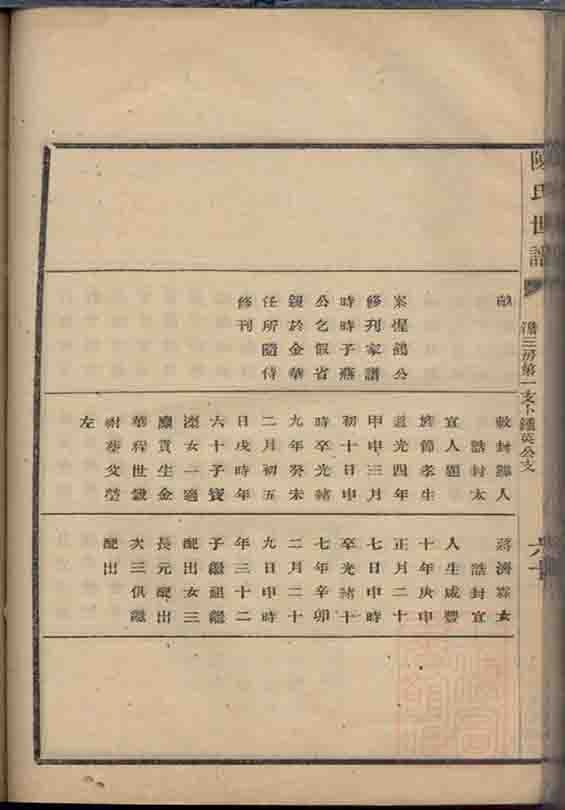 陳氏世譜
三房第一支卜鍾英公支
畝
案惺鶴公
修刊家譜
時時子燕
公乞假省
親於金華
任所隨侍
修刊
敕封孺人
誥封太
宜人題
旌節孝生
道光四年
甲申三月
初十日申
時卒光緒
九年癸未
二月初五
日戌時年
六十子寶
女一適
廩貢生金
華程世
祔葬父塋
左
蔣濟霖女
誥封宜
人生咸豐
十年庚申
正月二十
七日申時
卒光緒十
七年辛卯
二月二十
九日申時
年三十二
子繼祖繼
配出女三
長元配出
次三俱繼
配出